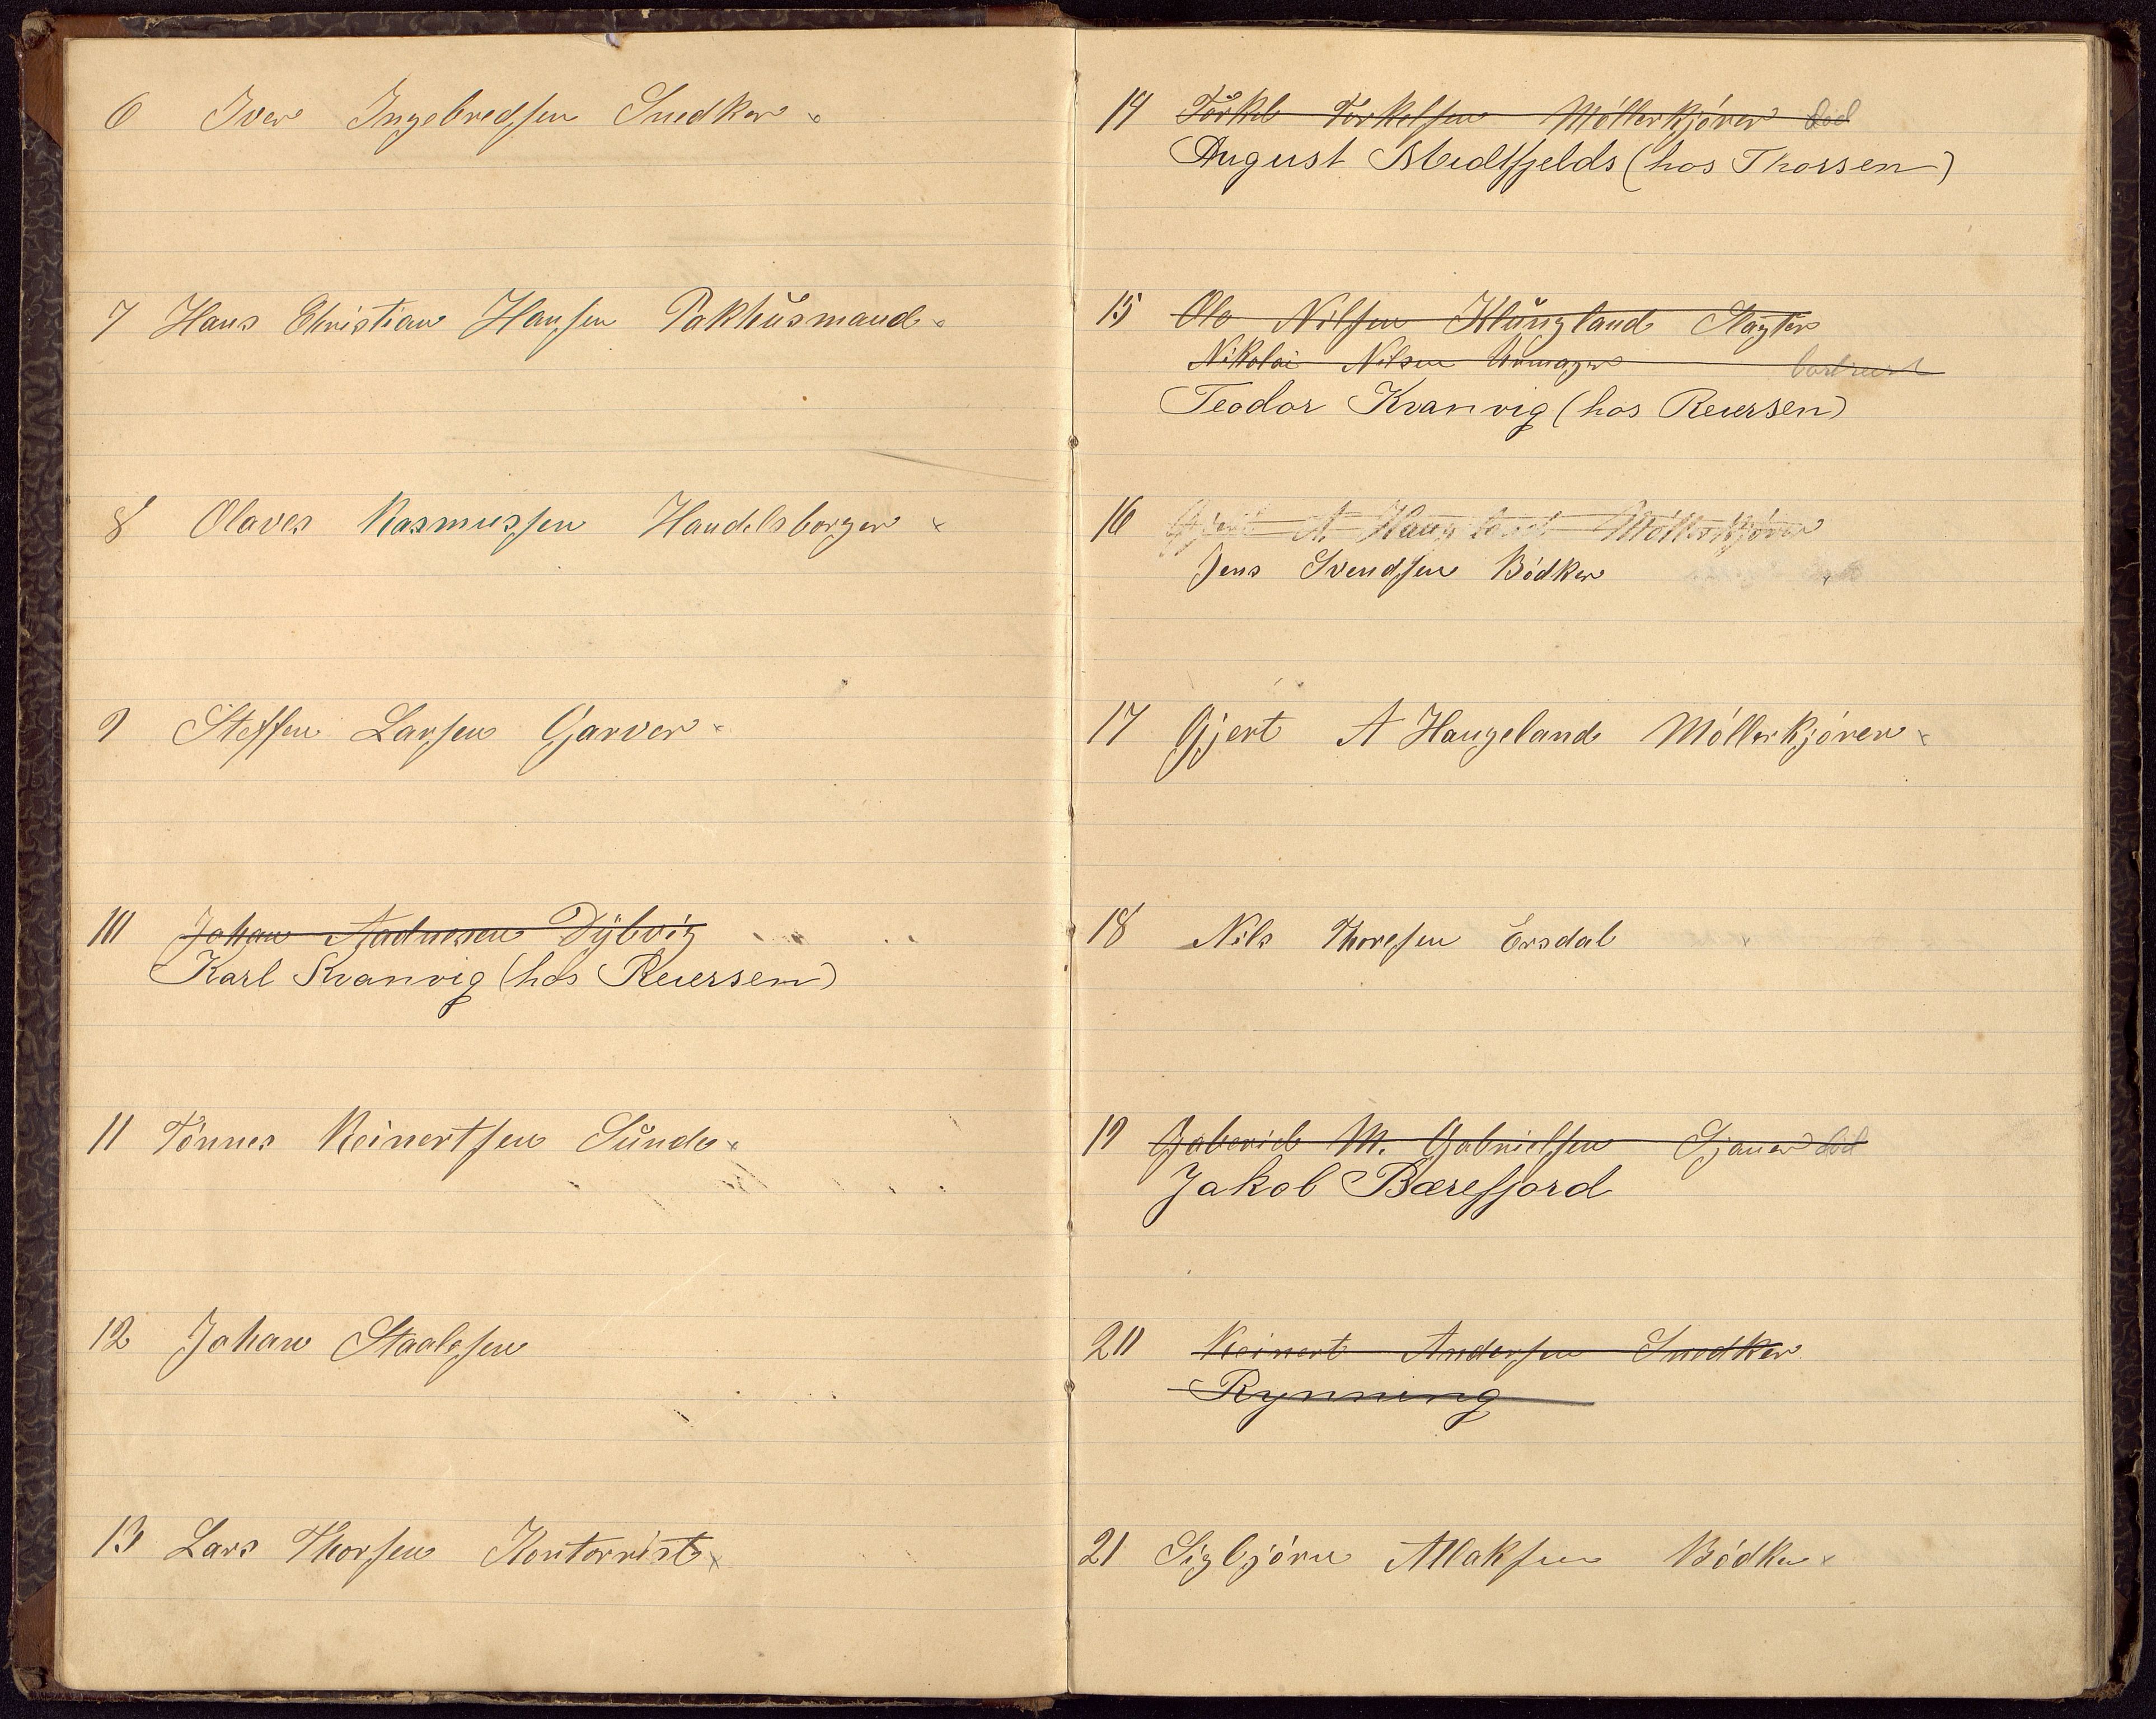 6 Iver Ingebredsen Snedker x
7 Hans Christian Hansen Pakhusmand x
8 Olaves Rasmussen Handelsborger x
9 Steffen Larsen Garver x
10 Johan Aadnesen Dybvig
Karl Kvanvig (hos Reiersen)
11 Tønnes Reinertsen Sunde x
12 Johan Staalesen
13 Lars Thorsen Kontorist x
14 Torkel Torkelsen Møllerkjører død
August Midtfjelds (hos Thorsen)
15 Ole Nilsen Klungland Slagter
Nikolai Nilsen Urmager bortreist
Teodor Kvanvig (hos Reiersen)
16 Gjert A. Haugeland Møllerkjører
Jens Svendsen Bødker x
17 Gjert A Haugeland Møllerkjører x
18 Nils Thoresen Ersdal x
19 Gaberiel M. Gabrielsen Sjauer død
Jakob Bærefjord
20 Reinert Andersen Snedker
Rynning
21 Sigbjørn Atlaksen Bødker x